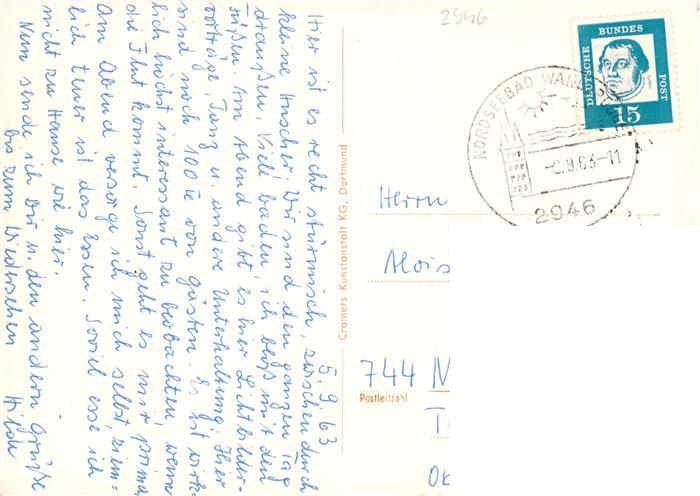 5.9.63
Hier ist es recht stürmisch, zwischendurch
kleine Huscher. Wir sind den ganzen Tag
draußen. Viele baden, ich bloß mit den
Füßen. Am Abend gibt es hier Lichtbilder-
vorträge, Tanz u. andere Unterhaltung. Hier
sind noch 100te von Gästen. Es ist wirk-
lich höchst interessant zu beobachten, wenn
die Flut kommt. Sonst geht es mir prima,
Am Abend versorge ich mich selbst, ziem-
lich teuer ist das Essen. Soviel esse ich
nicht zu Hause wie hier.
Nun sende ich Dir u. den andern Grüße
bis zum Wiedersehen
Hilde
Cramers Kunstanstalt KG, Dortmund
2946
DEUTSCHE BUNDES POST
15
NORDSEEBAD WANG
9.63-11
2946
Herrn
Alois
744 N
Postleitzahl